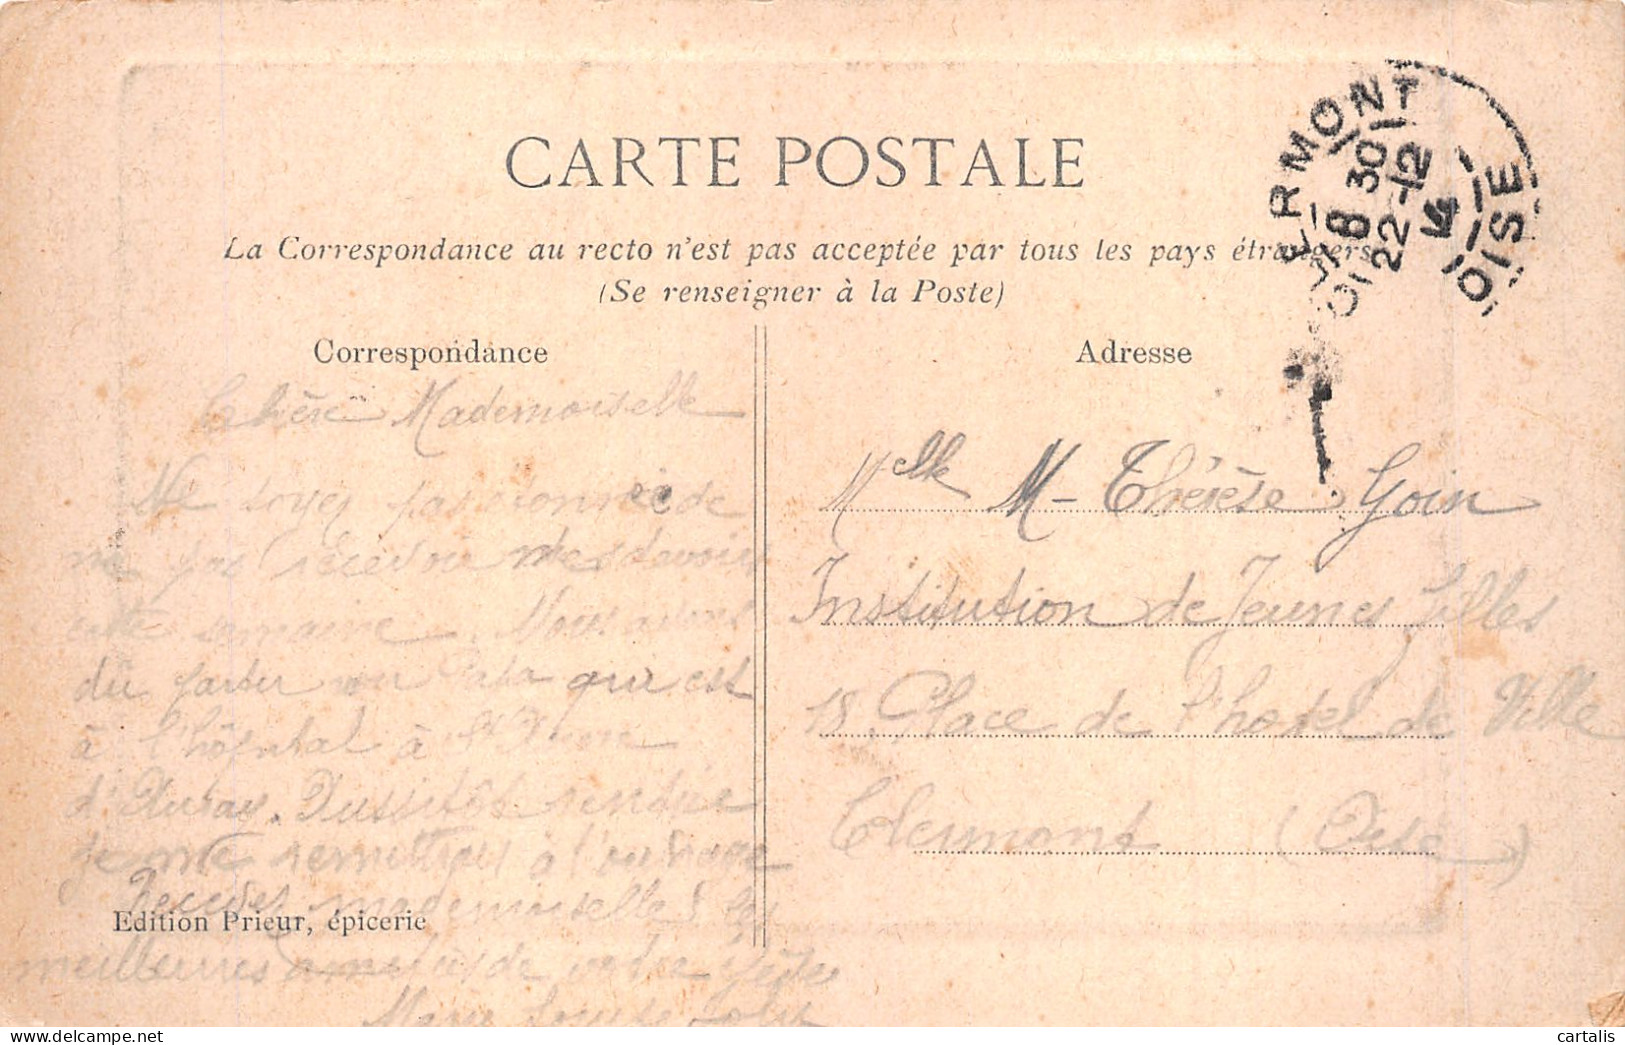 CARTE POSTALE
La Correspondance au recto n'est pas acceptée par tous les pays étrangers
(Se renseigner à la Poste)
Correspondance
Chère Mademoiselle
Ne soyez pas étonnée de
ne pas recevoir mes devoirs
cette semaine. Nous avons
du parter voir Papa qui est
à l'hôpital à St Anne
d'Auray. Aussitôt rentrée
je me remettrai à l'ouvrage
Recevez mademoiselle les
meilleures amitiés de votre
Marie Louise
Edition Prieur, épicerie
Adresse
Melle M-Thérèse Goin
Institution de Jeunes filles
18 Place de l'hotel de Ville
Clermont (Oise)
ERMONT
8 30
22-12
14
OISE
cartalis